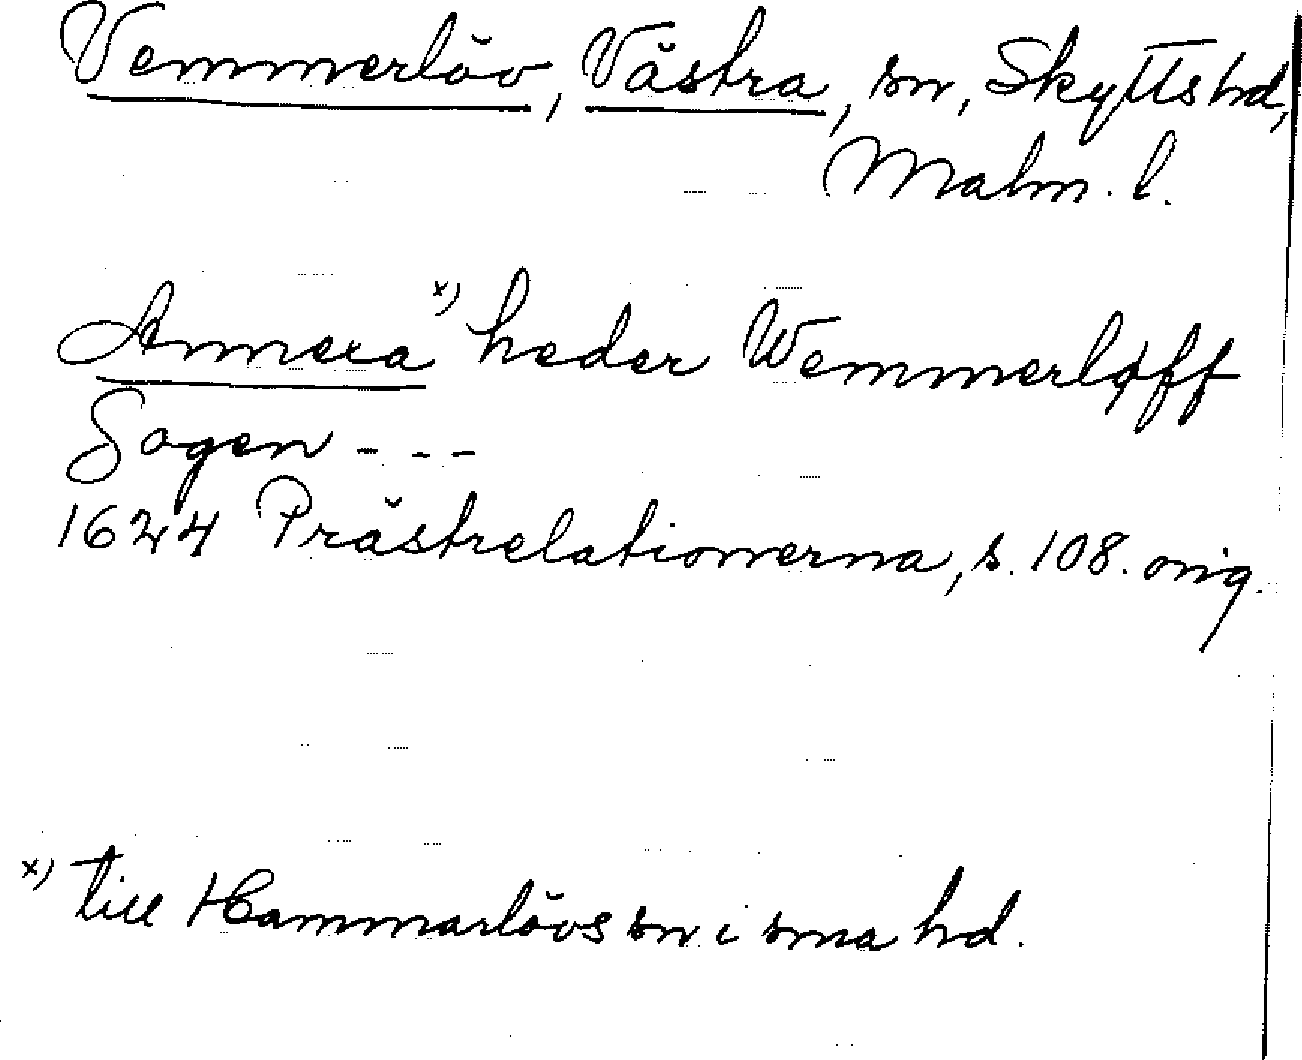 Vemmerlöv, Västra, sn, Skytts hd,
Malm. l.
Annexa x) heder Wemmerløff
Sogen - - -
1624 Prästrelationerna, s. 108. orig.
x) till Hammarlövs sn i sma hd.